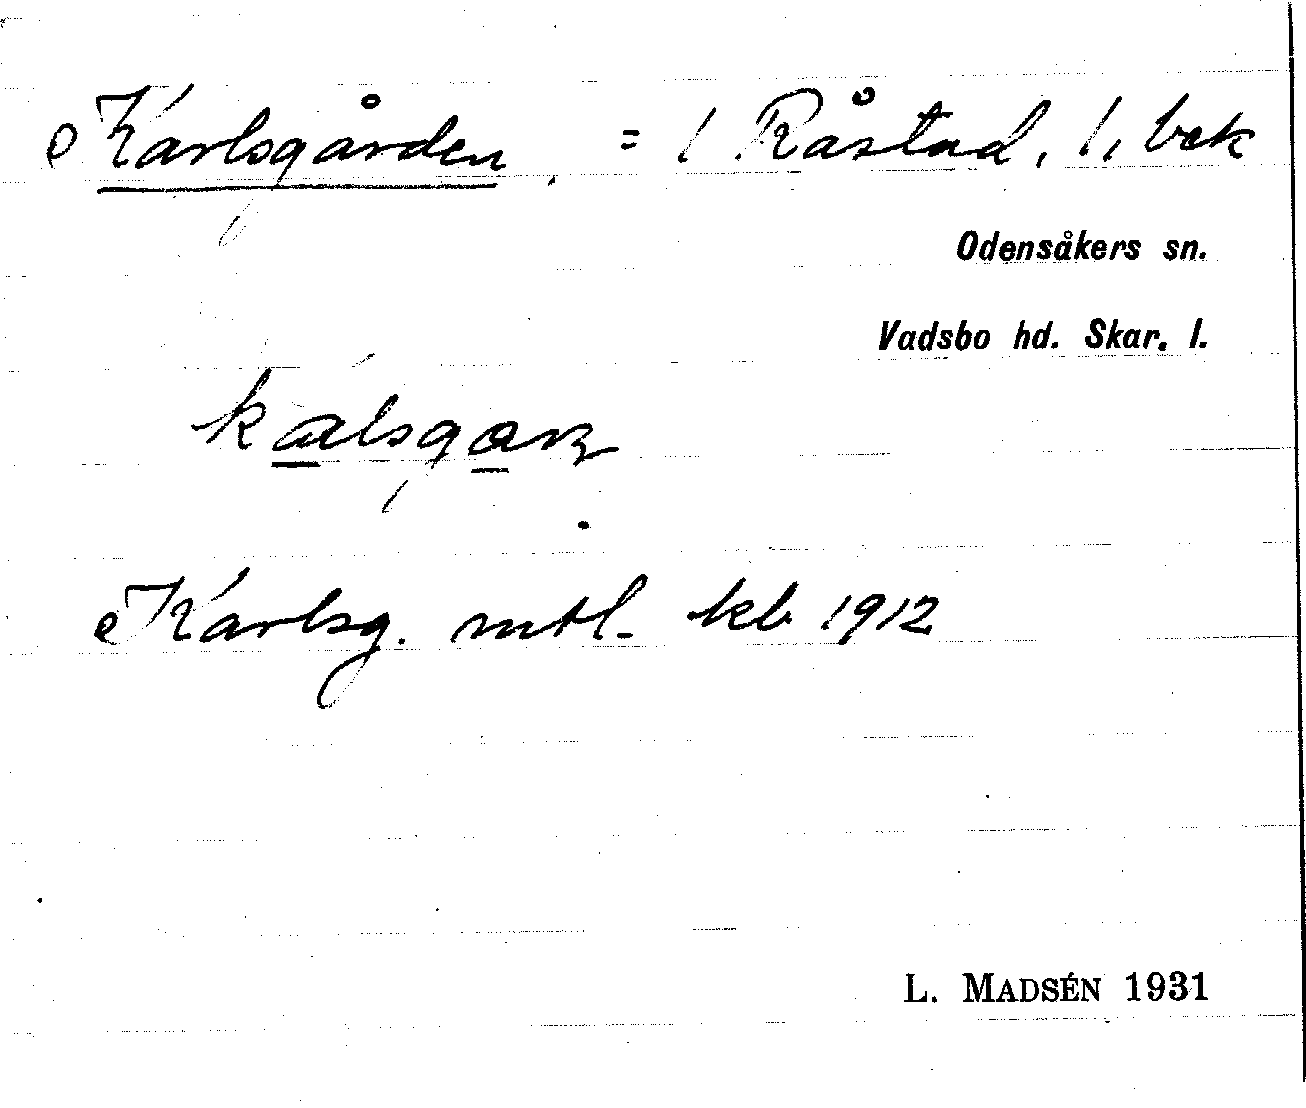 Karlsgården, = 1 Råstad, 1, bek
Odensåkers sn.
Vadsbo hd. Skar. l.
Karlsg. mtl. kb 1912
L. MADSÉN 1931